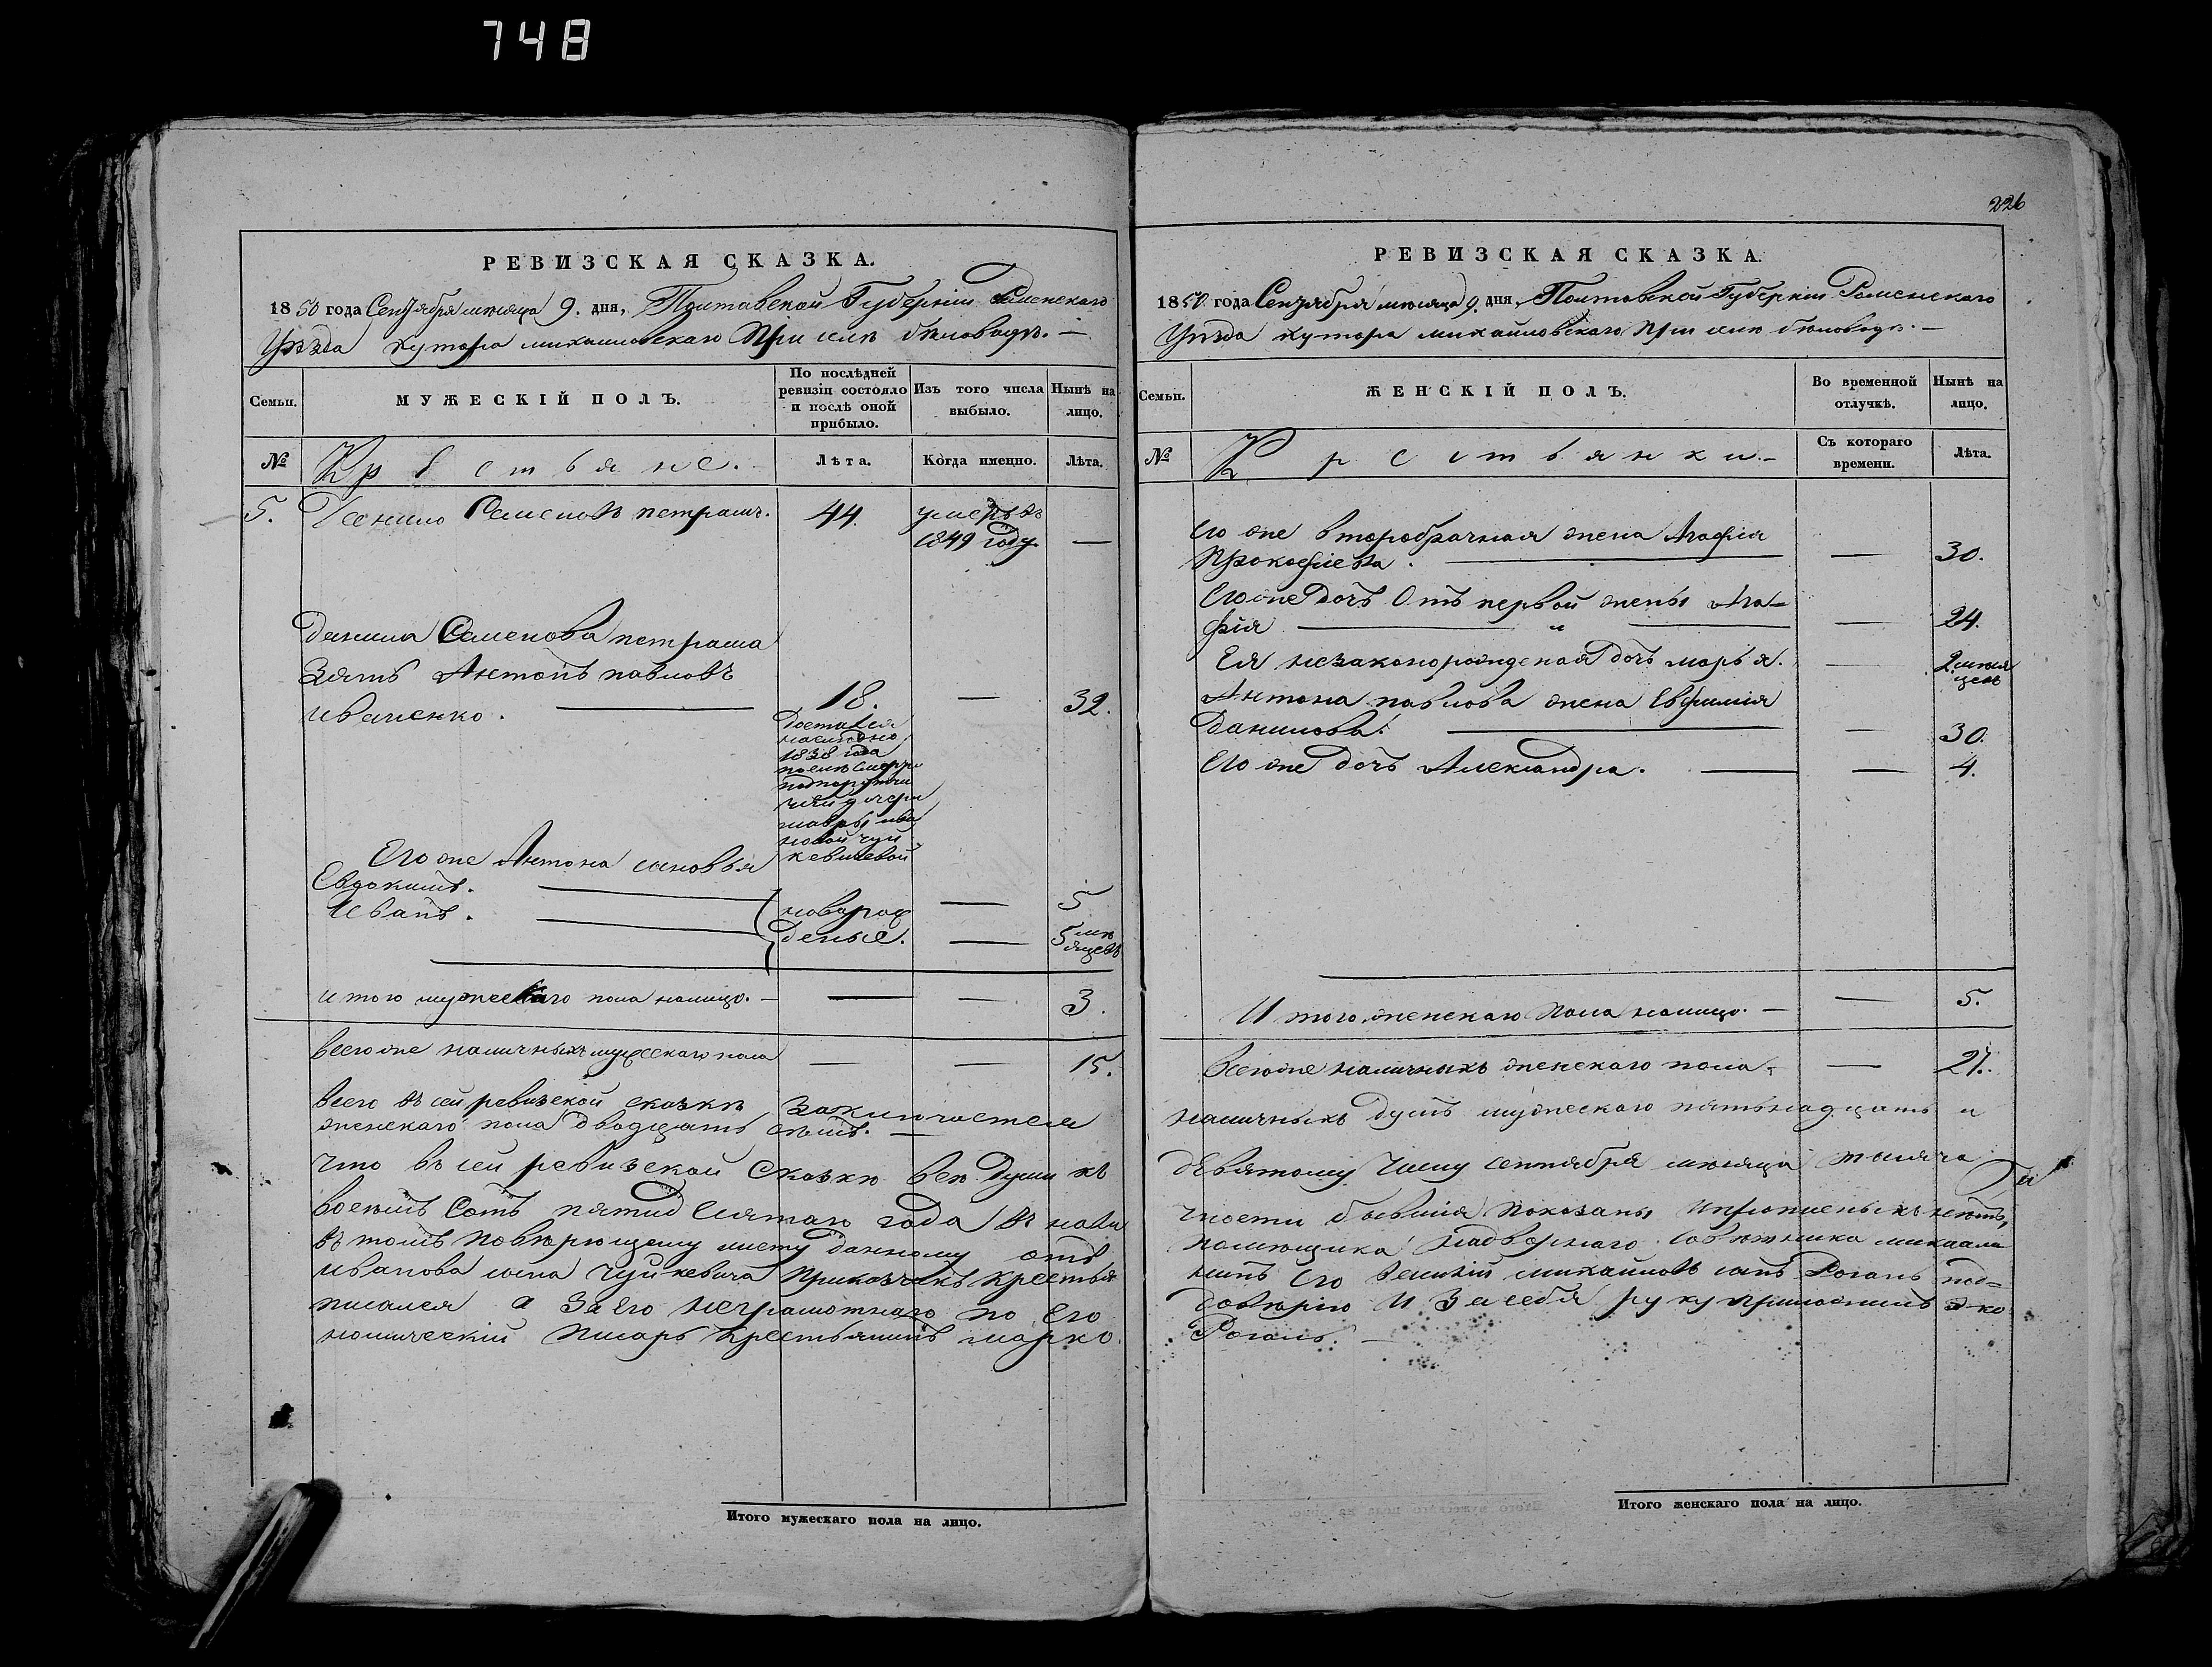 748
226
РЕВИЗСКАЯ СКАЗКА.
1850 года Сентября месяца 9. дня, Полтавской Губерніи Роменскаго
Уѣзда хутора михайловскаго При селѣ бѣловодѣ. —
Семьи.
МУЖЕСКІЙ ПОЛЪ.
По послѣдней ревизіи состояло и послѣ оной прибыло.
Изъ того числа выбыло.
Нынѣ на лицо.
№
Крестьяне.
Лѣта.
Когда именно.
Лѣта.
5. Семеновъ петрашъ. 44. умеръ въ
1849 году —
данила Семенова петраша
Зять Антонъ павловъ
иваненко. — 18. — 32.
Достался
наследно
1838 года
после смерти
дочери
мавры ива
новой чуй
кевичевой
Его же Антона сыновья
Евдокимъ. — новорож — 5
Иванъ. — деные. — 5 мѣ
сяцевъ
итого мужескаго пола налицо. — — — 3.
всего же наличныхъ мужескаго пола — — 15.
всего въ сей ревизской сказкѣ заключается
женскаго пола двадцать семь. —
Что въ сей ревизской Сказкѣ все души къ
восемь Сотъ пятидесятаго года въ нали
въ томъ повѣрющему листу данному отъ
иванова сына Чуйкевича прикащикъ крестья
писался а за его неграмотнаго по его
номическій писарь крестьянинъ марко
Итого мужескаго пола на лицо.
РЕВИЗСКАЯ СКАЗКА.
1850 года Сентября месяца 9. дня, Полтавской Губерніи Роменскаго
Уѣзда хутора михайловскаго При селѣ бѣловодѣ. —
Семьи.
ЖЕНСКІЙ ПОЛЪ.
Во временной отлучкѣ.
Нынѣ на лицо.
№
Крестьянки. —
Съ котораго времени.
Лѣта.
Его же второбрачная жена Агафия
Прокофиева. — — 30.
Его же дочь Отъ первой жены Ага-
фія — — 24.
Ея незаконорожденая дочь марья. — 2 мѣся
цевъ
Антона павлова жена Евфимия
Данилова. — — 30.
Его же дочь Александра. — — 4.
Итого женскаго пола налицо. — — 5.
Всего же наличныхъ женскаго пола — — 27.
наличныхъ душъ мужескаго пятьнадцать и
девятому Числу сентября месяца тысяча
чности бывшія показаны и прописныхъ нетъ,
помещика надворнаго советника михаила
нинъ его михайловъ сынъ Рогаль под=
доверію И за себя руку приложилъ эко
Рогаль. —
Итого женскаго пола на лицо.